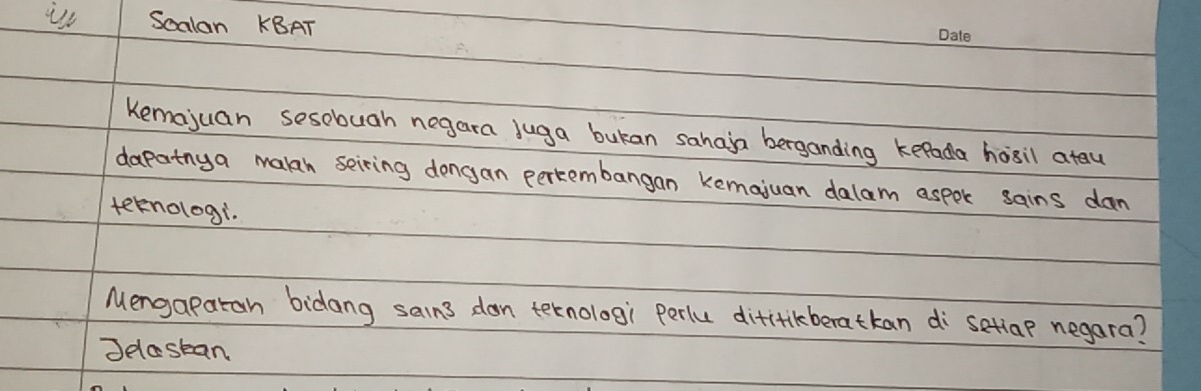 Soalan KBAT
Date
Kemajuan sesebuah negara juga bukan sahaja berganding kepada hasil atau
dapatnya malah seiring dengan perkembangan kemajuan dalam aspek sains dan
teknologi.
Mengapakah bidang sains dan teknologi perlu dititikberatkan di setiap negara?
Jelaskan